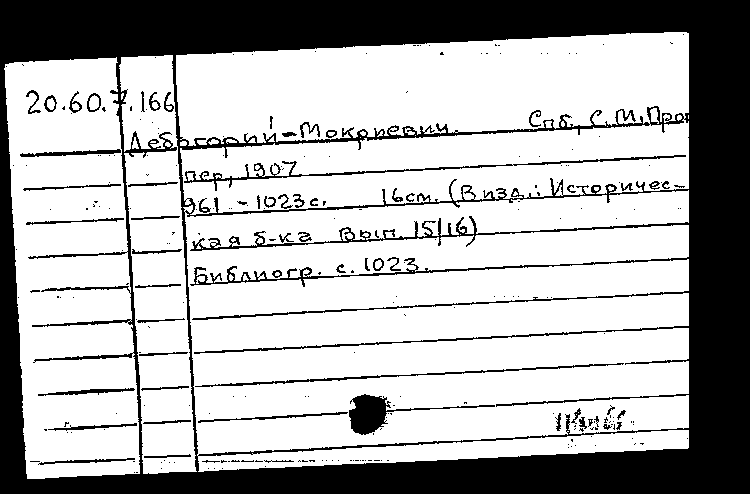 20.60.7.166
Дебогорий-Мокриевич. Спб., С.М.Проп
пер, 1907
961 - 1023 с. 16см. (В изд.: Историчес-
кая б-ка Вып. 15/16)
Библиогр. с. 1023.